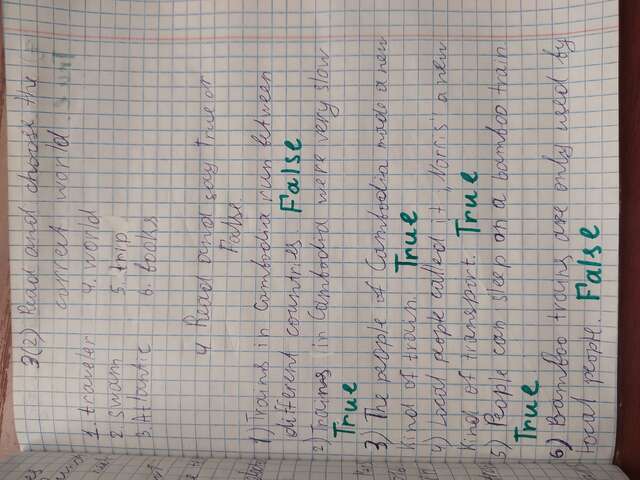 3(2) Read and choose the
currect world.
1. traveler 4. world
2. Swam 5. trip
3. Atlantic 6. books
4 Read and say true or
False.
1) Trains in Cambodia run between
different countries. False
2) Trains in Cambodia were very slow
True
3) The people of Cambodia made a new
kind of train. True
4) Local people called it "Norris" a new
kind of transport. True
5) People can sleep on a bamboo train
True
6) Bamboo trains are only used by
local people. False